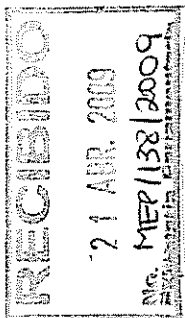 RECIBIDO
21 ABR. 2009
No. MEP/138/2009